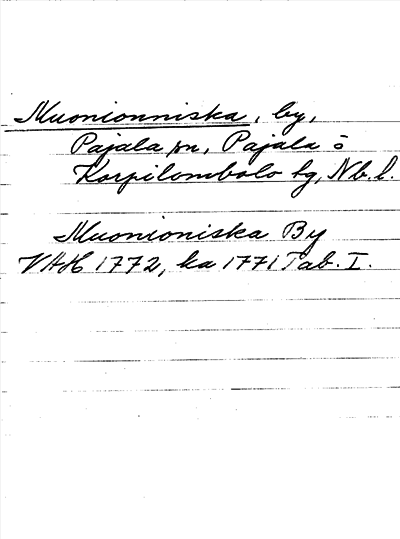 Muonionniska, by,
Pajala sn, Pajala o
Korpilombolo tg, Nb. l.
Muonioniska By
VAH 1772, ka 1771 Tab. I.